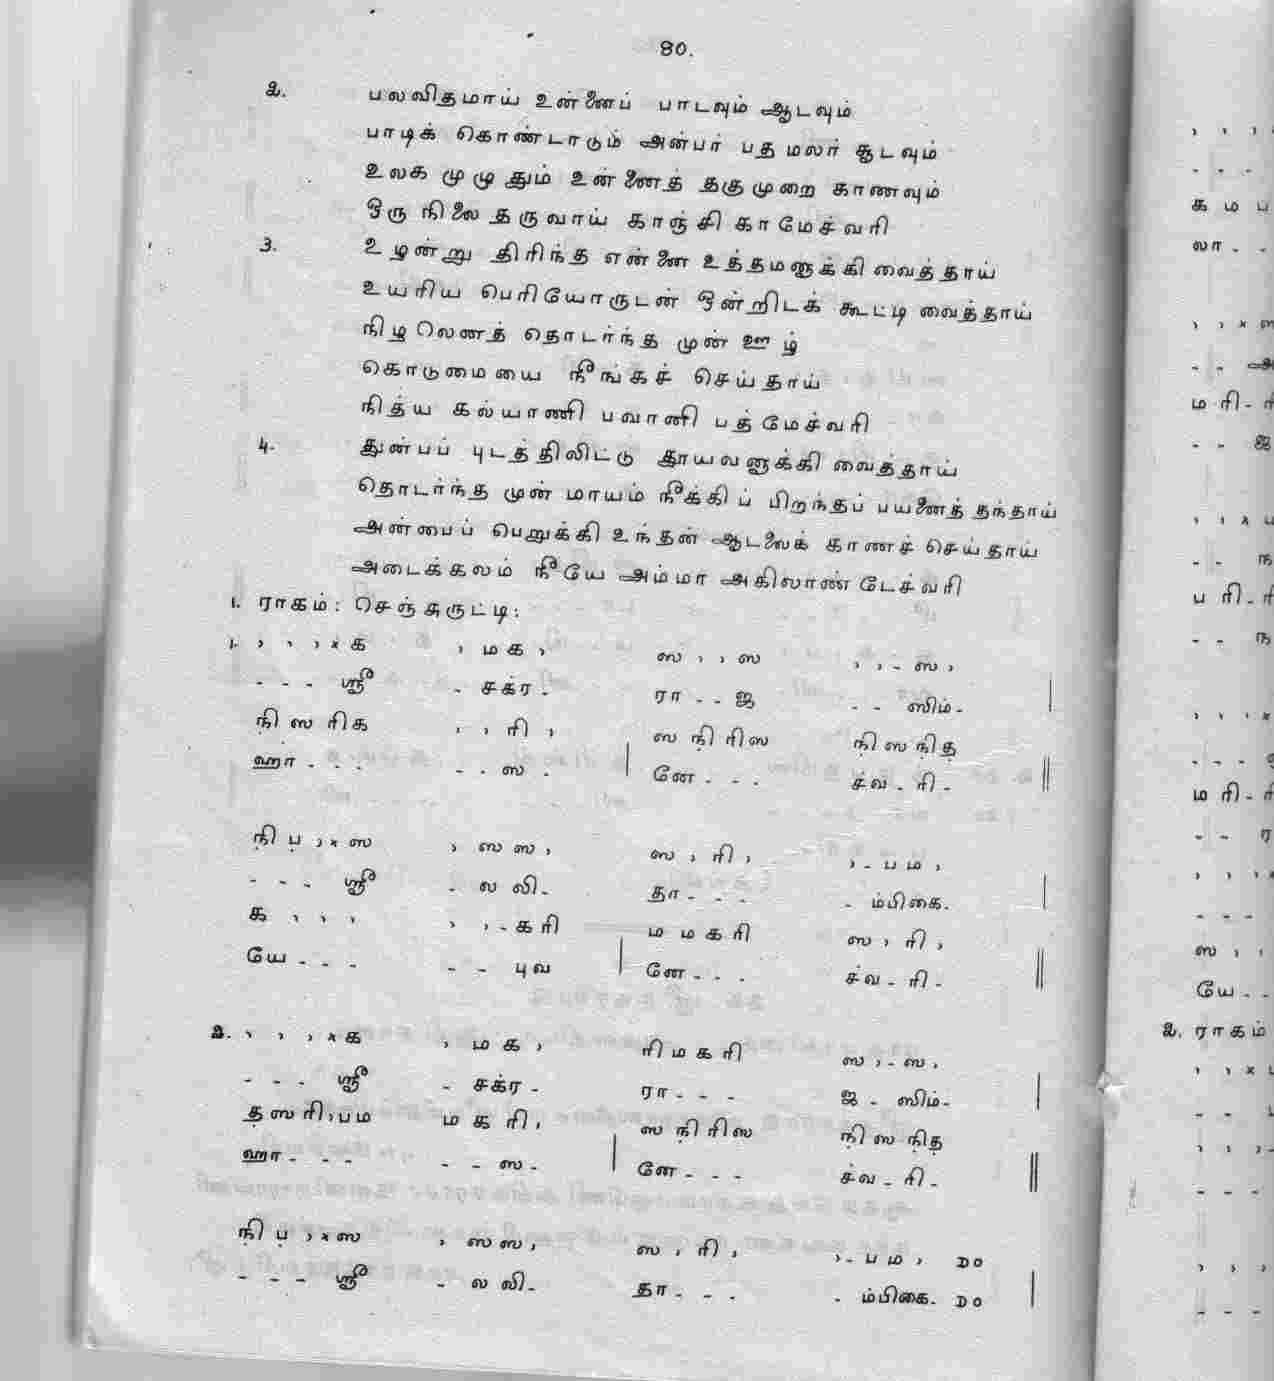 80.
2. பலவிதமாய் உன்னைப் பாடவும் ஆடவும்
பாடிக் கொண்டாடும் அன்பர் பதமலர் சூடவும்
உலக முழுதும் உன்னைத் தகுமுறை காணவும்
ஒரு நிலை தருவாய் காஞ்சி காமேச்வரி
3. உழன்று திரிந்த என்னை உத்தமனுக்கி வைத்தாய்
உயரிய பெரியோருடன் ஒன்றிடக் கூட்டி வைத்தாய்
நிழலெனத் தொடர்ந்த முன் ஊழ்
கொடுமையை நீங்கச் செய்தாய்
நித்ய கல்யாணி பவானி பத்மேச்வரி
4. துன்பப் புடத்திலிட்டு தூயவனுக்கி வைத்தாய்
தொடர்ந்த முன் மாயம் நீக்கிப் பிறந்தப் பயனைத் தந்தாய்
அன்பைப் பெறுக்கி உந்தன் ஆடலைக் காணச் செய்தாய்
அடைக்கலம் நீயே அம்மா அகிலாண்டேச்வரி
1. ராகம்: செஞ்சுருட்டி:
1. , , , × க , ம க , ஸ , , ஸ , , - ஸ ,
- - - ஸ்ரீ - சக்ர - ரா - - ஜ - - ஸிம் - |
நிஸரிக , , ரி , ஸநிரிஸ நிஸநித
ஹா - - - - - ஸ - | னே - - - ச்வ - ரி - ||
நி ப , × ஸ , ஸ ஸ , ஸ , ரி , , - ப ம ,
- - - ஸ்ரீ - ல லி - தா - - - - ம்பிகை. |
க , , , , , - கரி ம ம க ரி ஸ , ரி ,
யே - - - - - புவ | னே - - - ச்வ - ரி - ||
2. , , , × க , ம க , ரி ம க ரி ஸ , - ஸ ,
- - - ஸ்ரீ - சக்ர - ரா - - - ஜ - ஸிம் - |
தஸரி,பம மகரி, ஸநிரிஸ நிஸநித
ஹா - - - - - ஸ - | னே - - - ச்வ - ரி - ||
நி ப , × ஸ , ஸ ஸ , ஸ , ரி , , - ப ம , DO
- - - ஸ்ரீ - ல லி - தா - - - - ம்பிகை. DO |
க ம ப
லா - -
ம ரி -
- - ஜ
ப ரி -
ம ரி -
ஸ , ,
யே - -
2. ராகம்